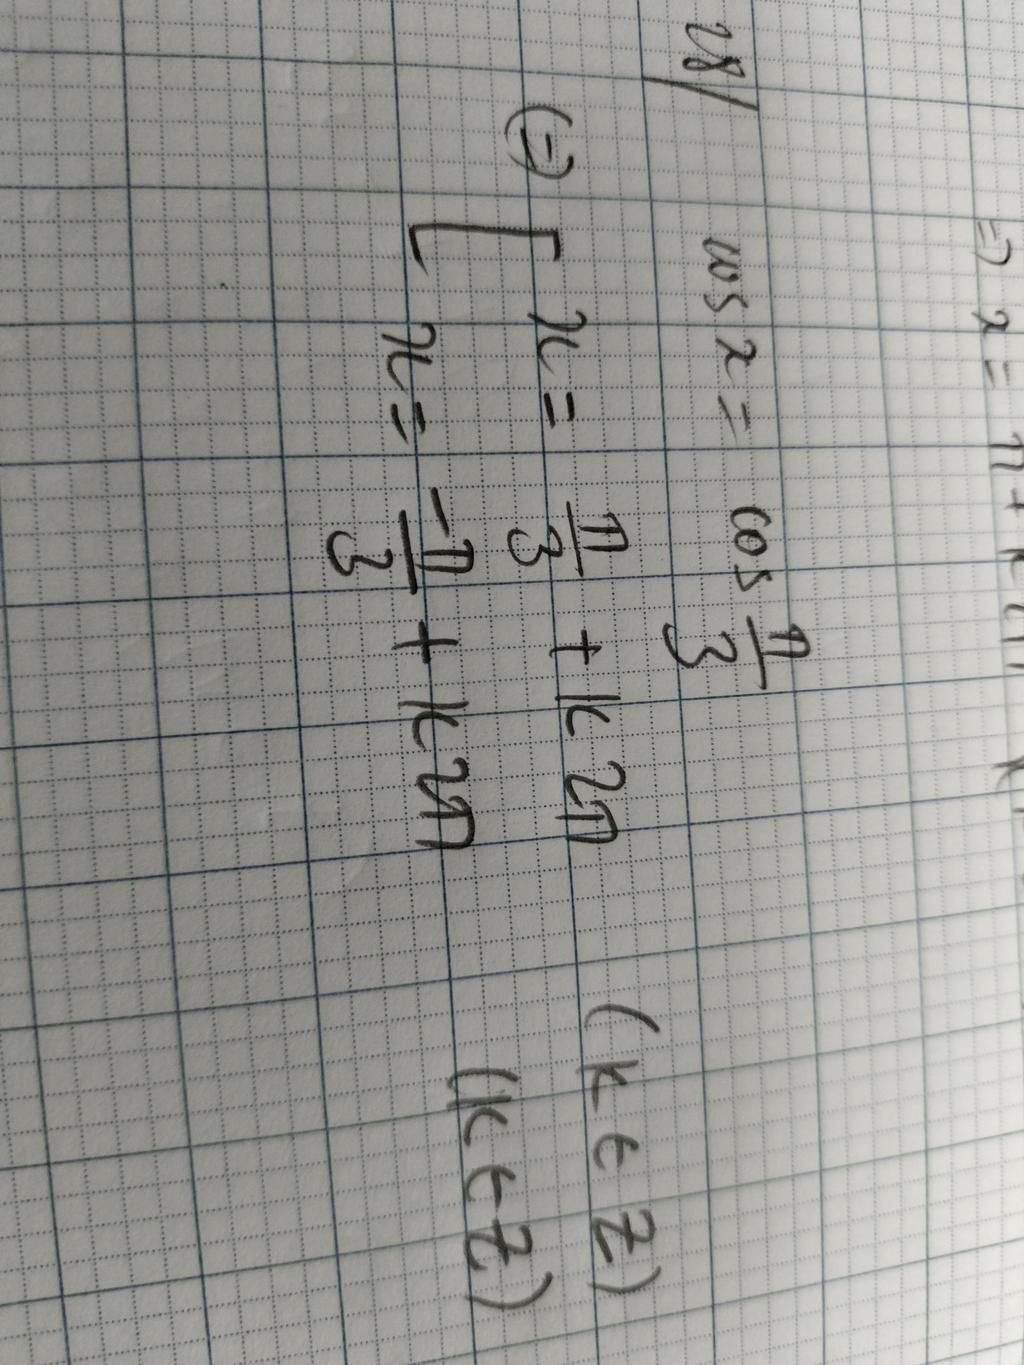 => x = π + k2π
28/ cos x = cos π/3
(=) [ x = π/3 + k2π (k ∈ Z)
x = -π/3 + k2π (k ∈ Z)